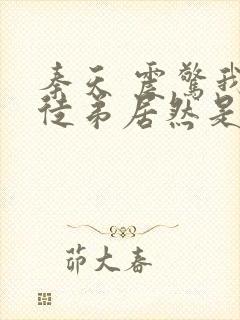 奉天 震惊我
徒弟居然是
茆大春